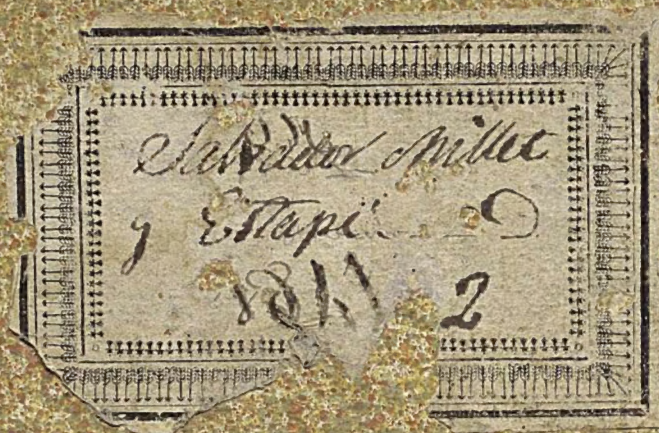 Salvador Millet
y Estapé
1841 2